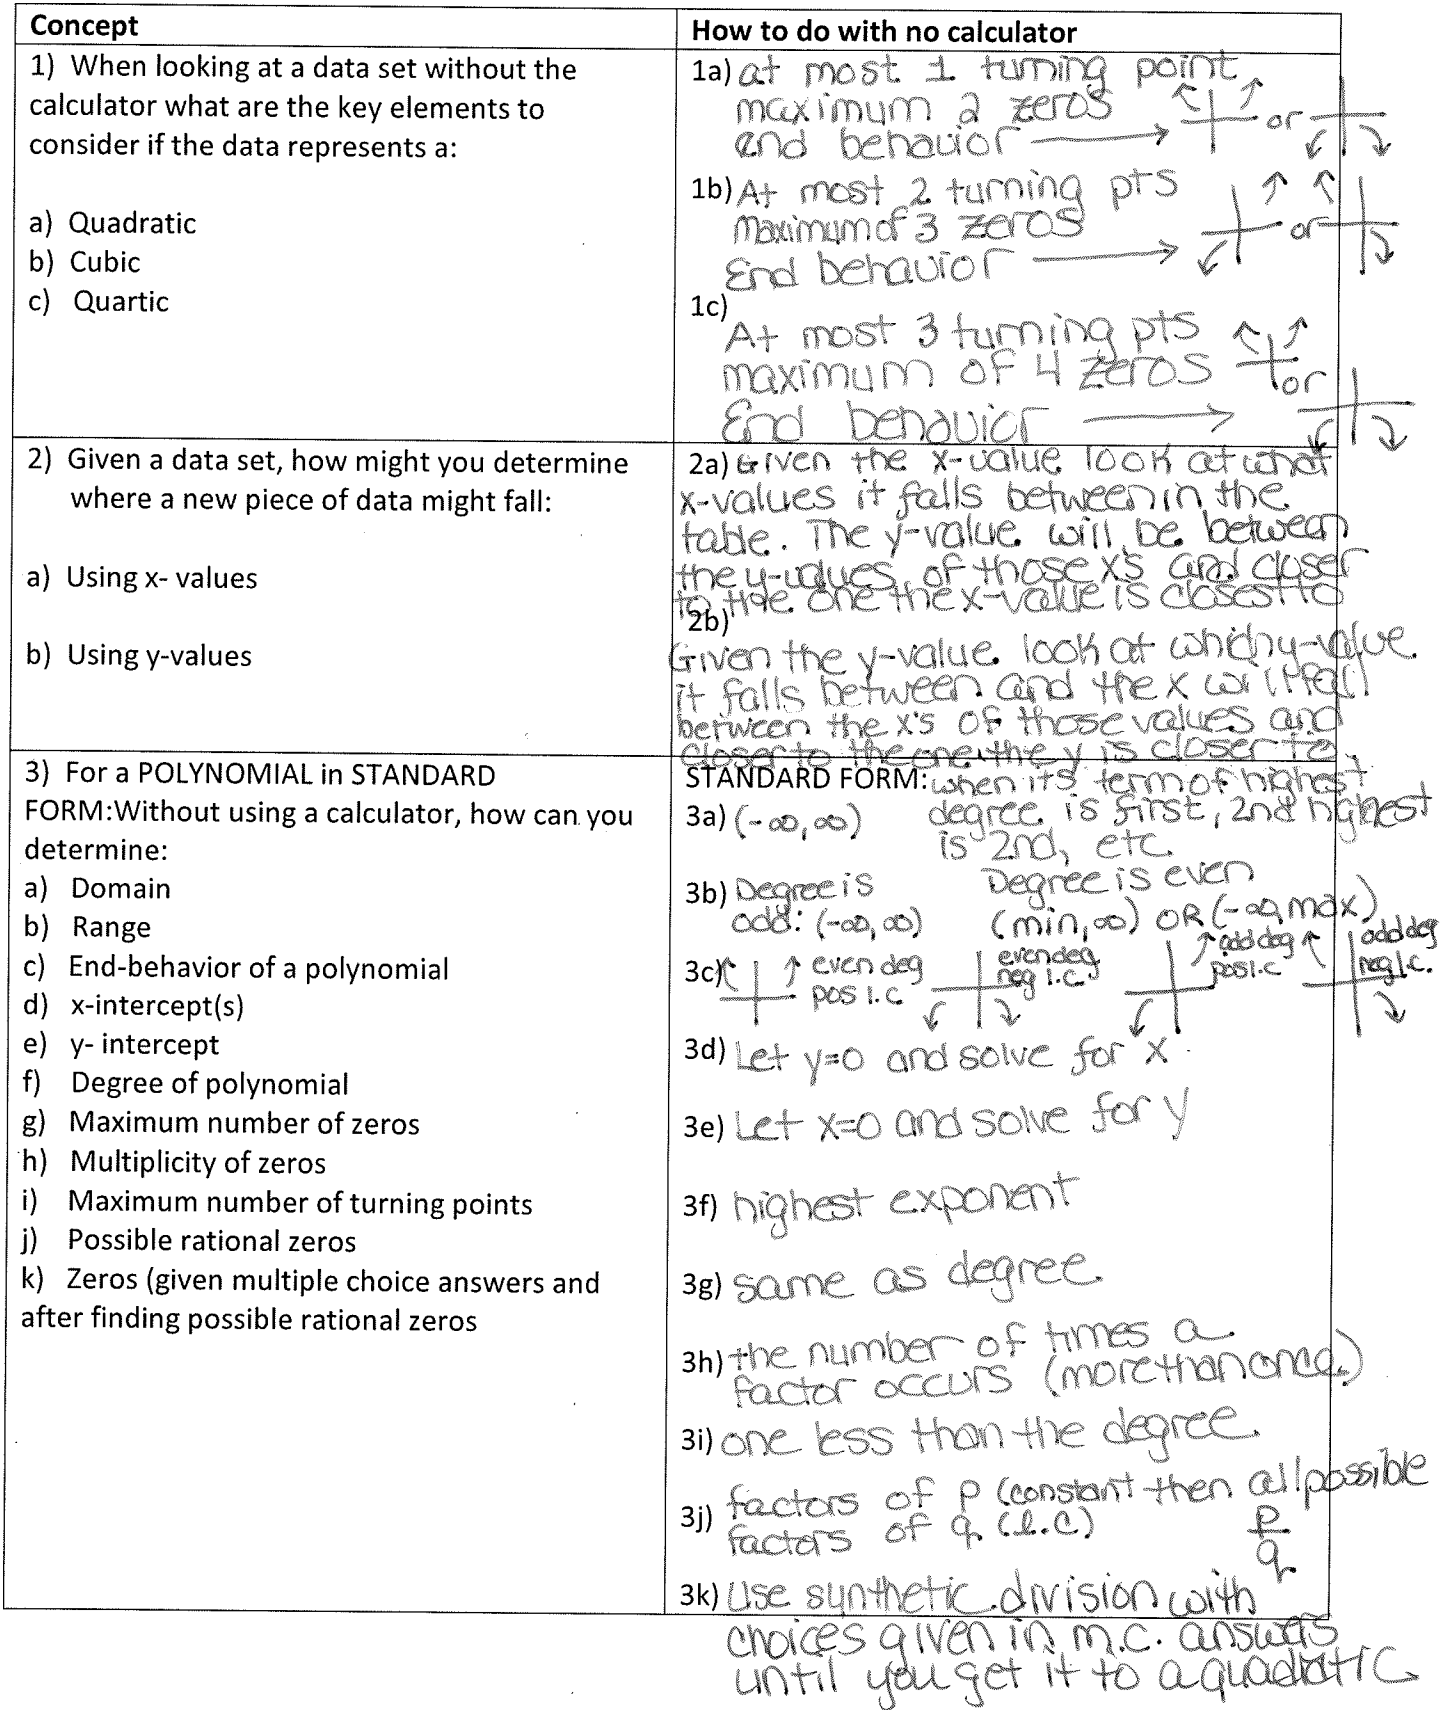 Concept
How to do with no calculator
1) When looking at a data set without the
calculator what are the key elements to
consider if the data represents a:
a) Quadratic
b) Cubic
c) Quartic
1a) at most 1 turning point
maximum 2 zeros
end behavior → or
1b) At most 2 turning pts
Maximum of 3 zeros
End behavior → or
1c)
At most 3 turning pts
maximum of 4 zeros or
End behavior →
2) Given a data set, how might you determine
where a new piece of data might fall:
a) Using x- values
b) Using y-values
2a) Given the x-value look at what
x-values it falls between in the
table. The y-value will be between
the y-values of those x's and closer
to the one the x-value is closest to
2b)
Given the y-value look at which y-value
it falls between and the x will fall
between the x's of those values and
closer to the one the y is closer to.
3) For a POLYNOMIAL in STANDARD
FORM:Without using a calculator, how can you
determine:
a) Domain
b) Range
c) End-behavior of a polynomial
d) x-intercept(s)
e) y- intercept
f) Degree of polynomial
g) Maximum number of zeros
h) Multiplicity of zeros
i) Maximum number of turning points
j) Possible rational zeros
k) Zeros (given multiple choice answers and
after finding possible rational zeros
STANDARD FORM: when its term of highest
degree is first, 2nd highest
is 2nd, etc.
3a) (-∞,∞)
3b) Degree is Degree is even
odd: (-∞,∞) (min,∞) OR (-∞,max)
3c) even deg
pos l.c.
even deg
neg l.c.
odd deg
pos l.c
odd deg
neg l.c.
3d) Let y=0 and solve for x
3e) Let x=0 and solve for y
3f) highest exponent
3g) same as degree.
3h) the number of times a
factor occurs (more than once.)
3i) one less than the degree.
3j) factors of p (constant then all possible
factors of q (l.c) p/q
3k) Use synthetic division with
choices given in m.c. answers
until you get it to a quadratic